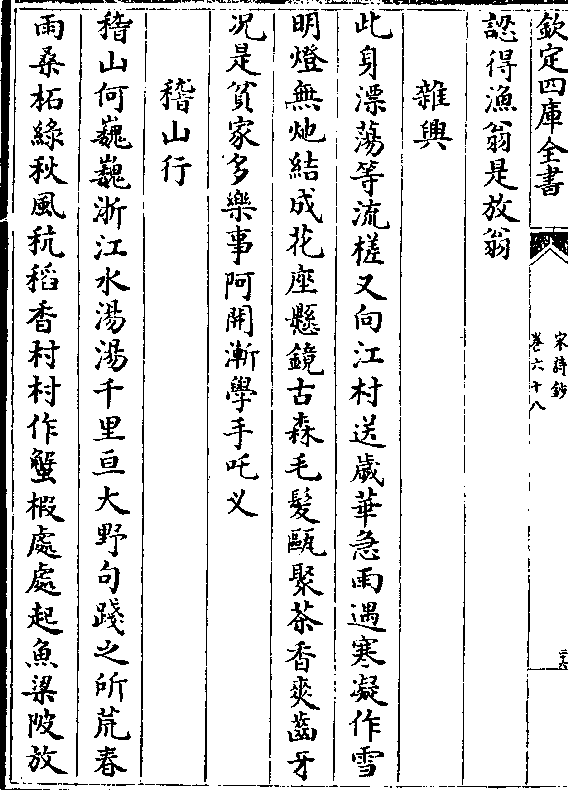 欽定四庫全書
宋詩鈔
卷六十八
認得漁翁是放翁
雜興
此身漂蕩等流槎又向江村送歲華急雨遇寒凝作雪
明燈無灺結成花座懸鏡古森毛髮甌聚茶香爽齒牙
况是貧家多樂事阿開漸學手吒义
稽山行
稽山何巍巍浙江水湯湯千里亘大野句踐之所荒春
雨桑柘綠秋風秔稻香村村作蟹椵處處起魚梁陂放